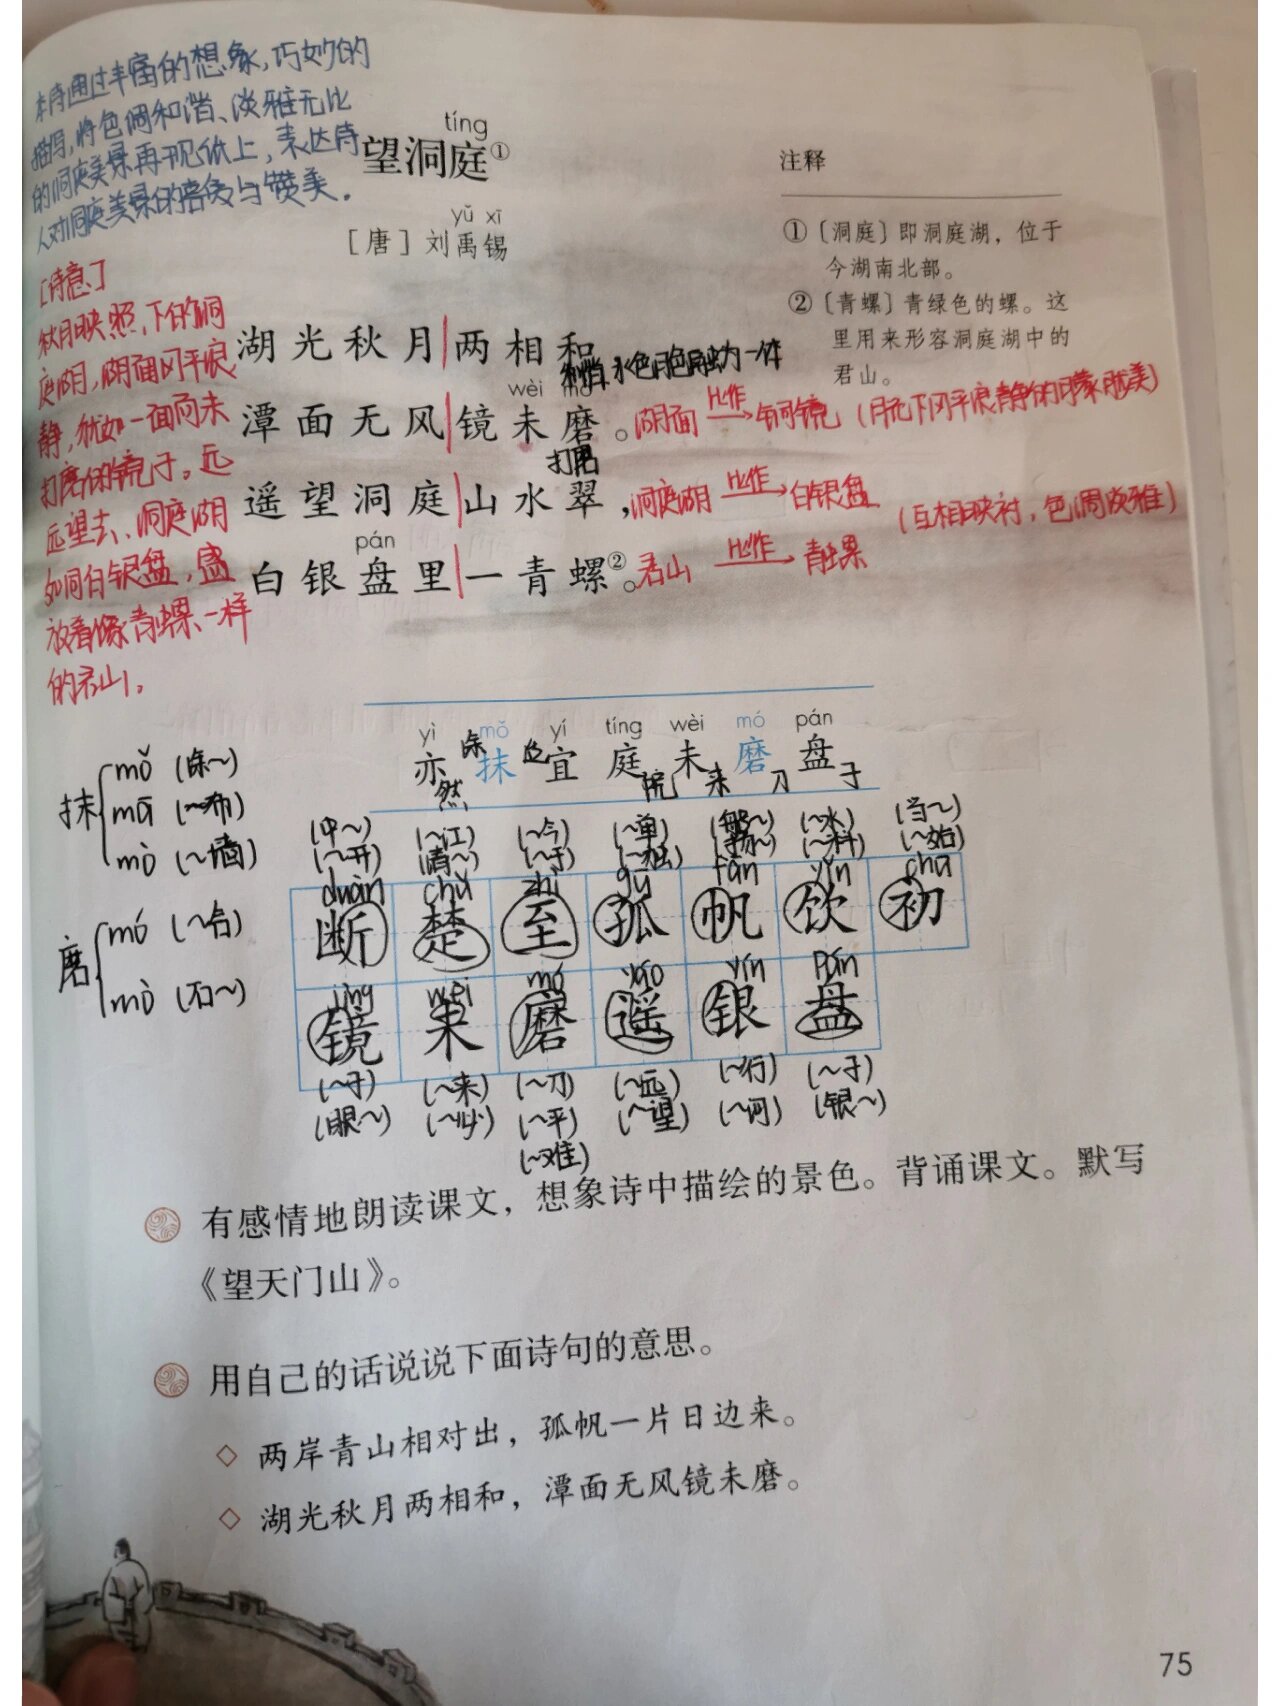 本诗通过丰富的想象,巧妙的
描写,将色调和谐、淡雅无比
的洞庭美景再现纸上,表达诗
人对洞庭美景的喜爱与赞美.
tíng
望洞庭①
yǔ xī
[唐] 刘禹锡
注释
① [洞庭] 即洞庭湖，位于
今湖南北部。
② [青螺] 青绿色的螺。这
里用来形容洞庭湖中的
君山。
[诗意]
秋月映照下的洞
庭湖,湖面风平浪
静,犹如一面尚未
打磨的镜子。远
远望去、洞庭湖
如同白银盘,盛
放着像青螺一样
的君山。
湖光秋月两相和
和谐,水色月色融为一体
wèi mó
潭面无风镜未磨。
打磨
湖面 比作 铜镜 (月光下风平浪静的朦胧美)
遥望洞庭山水翠，
洞庭湖 比作 白银盘 (互相映衬,色调淡雅)
pán
白银盘里一青螺②。
君山 比作 青螺
yì mǒ yí tíng wèi mó pán
亦 抹 宜 庭 未 磨 盘
然 涂 院 来 刀 子
抹
mǒ (涂~)
mā (~布)
mò (~墙)
磨
mó (~合)
mò (石~)
(中~) (~江) (~今) (~单) (~水) (当~)
(~开) (清~) (~于) (~独) (~料) (~始)
duàn chǔ zhì gū fān yǐn chū
断 楚 至 孤 帆 饮 初
jìng wèi mó yáo yín pán
镜 未 磨 遥 银 盘
(~子) (~来) (~刀) (~远) (~行) (~子)
(眼~) (~必) (~平) (~望) (~河) (银~)
(~难)
有感情地朗读课文，想象诗中描绘的景色。背诵课文。默写
《望天门山》。
用自己的话说说下面诗句的意思。
◇ 两岸青山相对出，孤帆一片日边来。
◇ 湖光秋月两相和，潭面无风镜未磨。
75